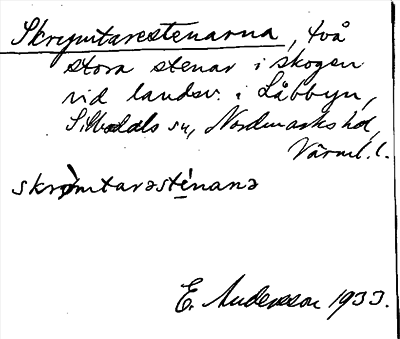 Skrymtarestenarna, två
stora stenar i skogen
vid landsv. i Låbbyn,
Silbodals sn, Nordmarks hd,
Värml. l.
skrỳmtarəsténanə
E. Andersson 1933.